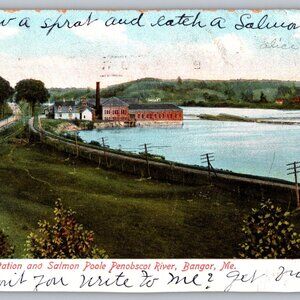 w a sprat and catch a Salmon
Alice
tation and Salmon Poole Penobscot River, Bangor, Me.
n't you write to me? Get my